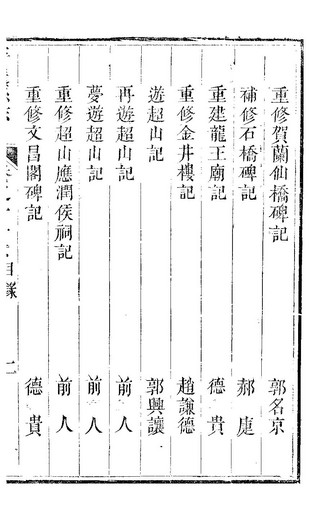 重修賀蘭仙橋碑記 郭名京
補修石橋碑記 郝𢈪
重建龍王廟記 德貴
重修金井樓記 趙謙德
遊超山記 郭興讓
再遊超山記 前人
夢遊超山記 前人
重修超山應潤侯祠記 前人
重修文昌閣碑記 德貴
目錄